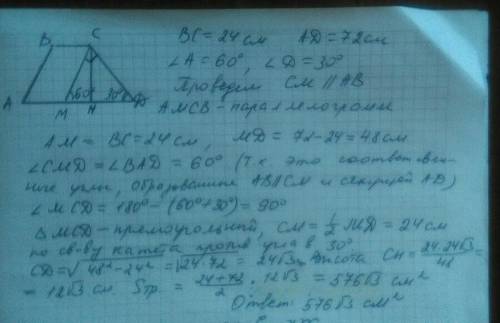 B
C
BC = 24 см AD = 72 см
∠A = 60°, ∠D = 30°
Проведем CM ∥ AB
AMCB - параллелограмм
A M N D
60° 30°
AM = BC = 24 см, MD = 72 - 24 = 48 см
∠CMD = ∠BAD = 60° (т.к. это соответствен-
ные углы, образованные AB∥CM и секущей AD)
∠MCD = 180° - (60° + 30°) = 90°
△MCD - прямоугольный, CM = 1/2 MD = 24 см
по св-ву катета против угла в 30°
CD = √48² - 24² = √24·72 = 24√3 высота CH = 24·24√3/48 =
= 12√3 см Sтр. = 24+72/2 · 12√3 = 576√3 см²
Ответ: 576√3 см²